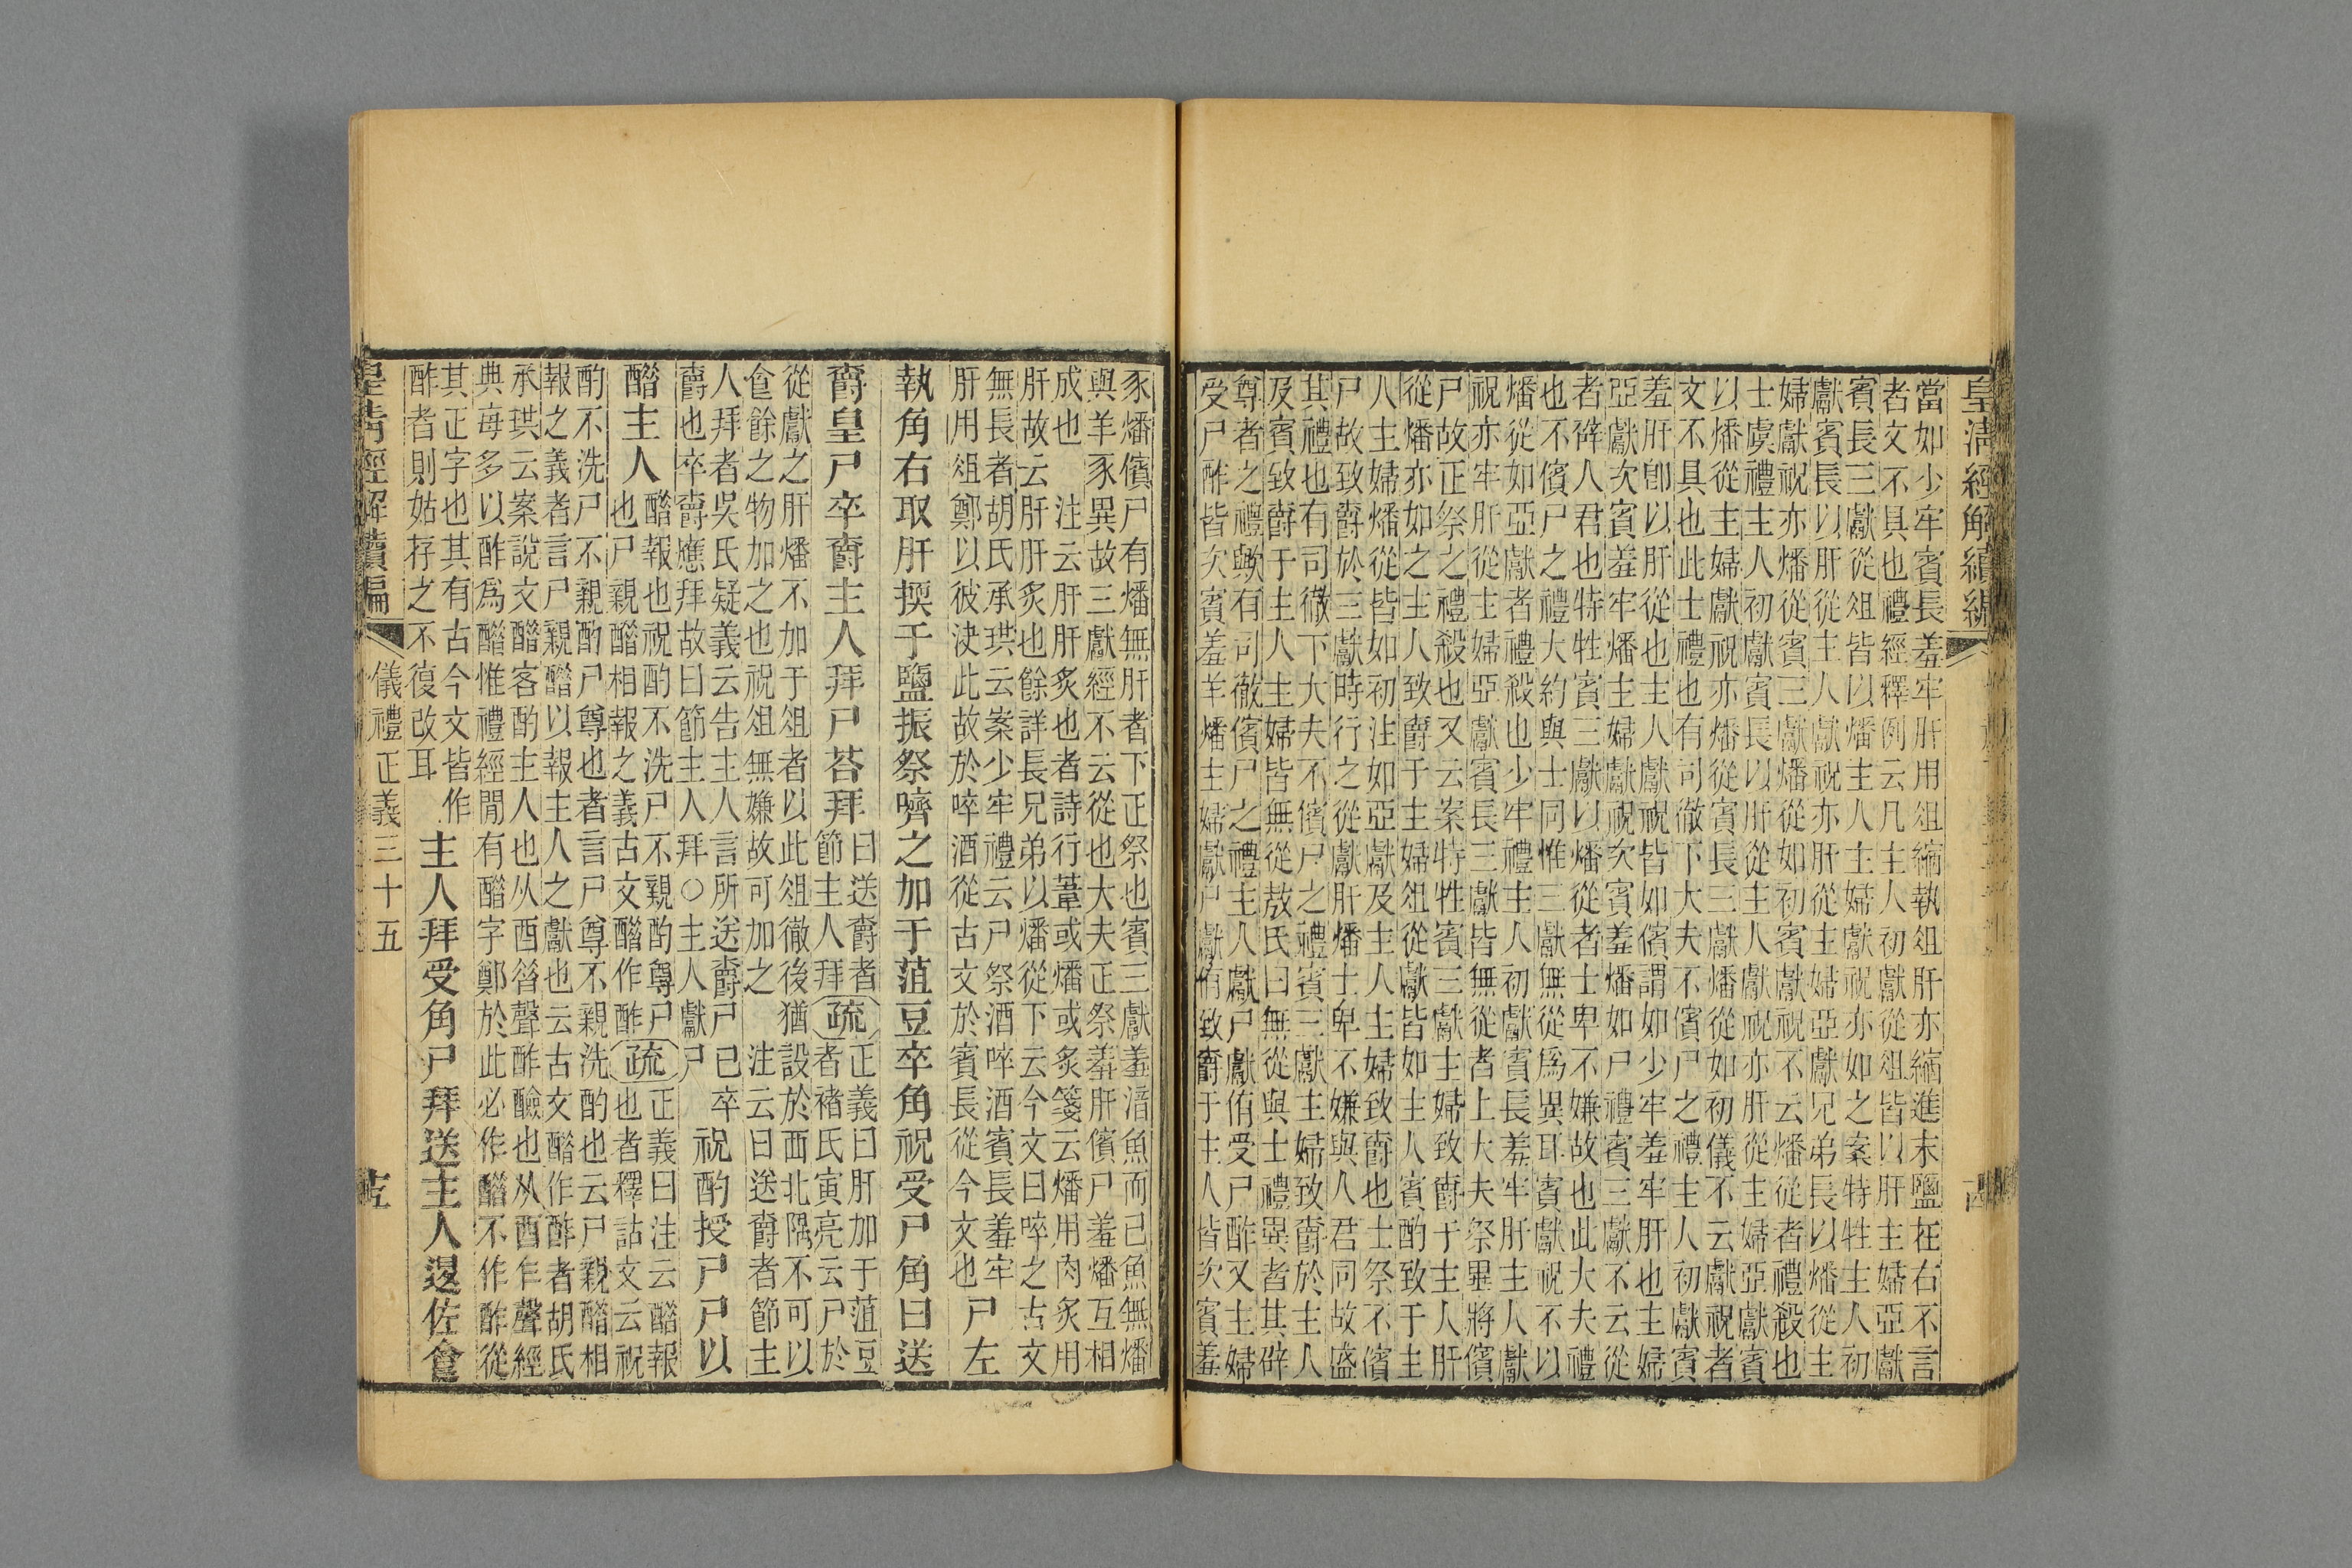 皇淸經解續編
當如少牢賓長羞牢肝用俎縮執俎肝亦縮進末鹽在右不言
者文不具也禮經釋例云凡主人初獻從俎皆以肝主婦亞獻
賓長三獻從俎皆以燔主人主婦獻祝亦如之案特牲主人初
獻賓長以肝從主人獻祝亦肝從主婦亞獻兄弟長以燔從主
婦獻祝亦燔從賓三獻燔從如初賓獻祝不云燔從者禮殺也
士虞禮主人初獻賓長以肝從主人獻祝亦肝從主婦亞獻賓
以燔從主婦獻祝亦燔從賓長三獻燔從如初儀不云獻祝者
文不具也此士禮也有司徹下大夫不儐尸之禮主人初獻賓
羞肝卽以肝從也主人獻祝皆如儐謂如少牢羞牢肝也主婦
亞獻次賓羞牢燔主婦獻祝次賓羞燔如尸禮賓三獻不云從
者碎人君也特牲賓三獻以燔從者士卑不嫌故也此大夫禮
也不儐尸之禮大約與士同惟三獻無從爲異耳賓獻祝不以
燔從如亞獻者禮殺也少牢禮主人初獻賓長羞牢肝主人獻
祝亦牢肝從主婦亞獻賓長三獻皆無從者上大夫祭畢將儐
尸故正祭之禮殺也又云案特牲賓三獻主婦致爵于主人肝
從燔亦如之主人致爵于主婦俎從獻皆如主人賓酌致于主
人主婦燔從皆如初注如亞獻及主人主婦致爵也士祭不儐
尸故致爵於三獻時行之從獻肝燔士卑不嫌與人君同故盛
其禮也有司徹下大夫不儐尸之禮賓三獻主婦致爵於主人
及賓致爵于主人主婦皆無從敖氏曰無從與士禮異者其辟
尊者之禮歟有司徹儐尸之禮主人獻尸獻侑受尸酢又主婦
受尸酢皆次賓羞羊燔主婦獻尸獻侑致爵于主人皆次賓羞
豕燔儐尸有燔無肝者下正祭也賓三獻羞湇魚而已魚無燔
與羊豕異故三獻經不云從也大夫正祭羞肝儐尸羞燔互相
成也　注云肝肝炙也者詩行葦或燔或炙箋云燔用肉炙用
肝故云肝肝炙也餘詳長兄弟以燔從下云今文曰啐之古文
無長者胡氏承珙云案少牢禮云尸祭酒啐酒賓長羞牢
肝用俎鄭以彼決此故於啐酒從古文於賓長從今文也
尸左
執角右取肝揳于鹽振祭嚌之加于菹豆卒角祝受尸角曰送
爵皇尸卒爵主人拜尸荅拜
曰送爵者
節主人拜
疏
正義曰肝加于菹豆
者褚氏寅亮云尸於
從獻之肝燔不加于俎者以此俎徹後猶設於西北隅不可以
食餘之物加之也祝俎無嫌故可加之　注云曰送爵者節主
人拜者吳氏疑義云告主人言所送爵尸已卒
爵也卒爵應拜故曰節主人拜○主人獻尸
祝酌授尸尸以
醋主人
醋報也祝酌不洗尸不親酌尊尸
也尸親醋相報之義古文醋作酢
疏
正義曰注云醋報
也者釋詁文云祝
酌不洗尸不親酌尸尊也者言尸尊不親洗酌也云尸親醋相
報之義者言尸親醋以報主人之獻也云古文醋作酢者胡氏
承珙云案說文醋客酌主人也从酉昝聲酢醶也从酉乍聲經
典每多以酢爲醋惟禮經閒有醋字鄭於此必作醋不作酢從
其正字也其有古今文皆作
酢者則姑存之不復改耳
主人拜受角尸拜送主人退佐食
皇清經解續編　儀禮正義三十五